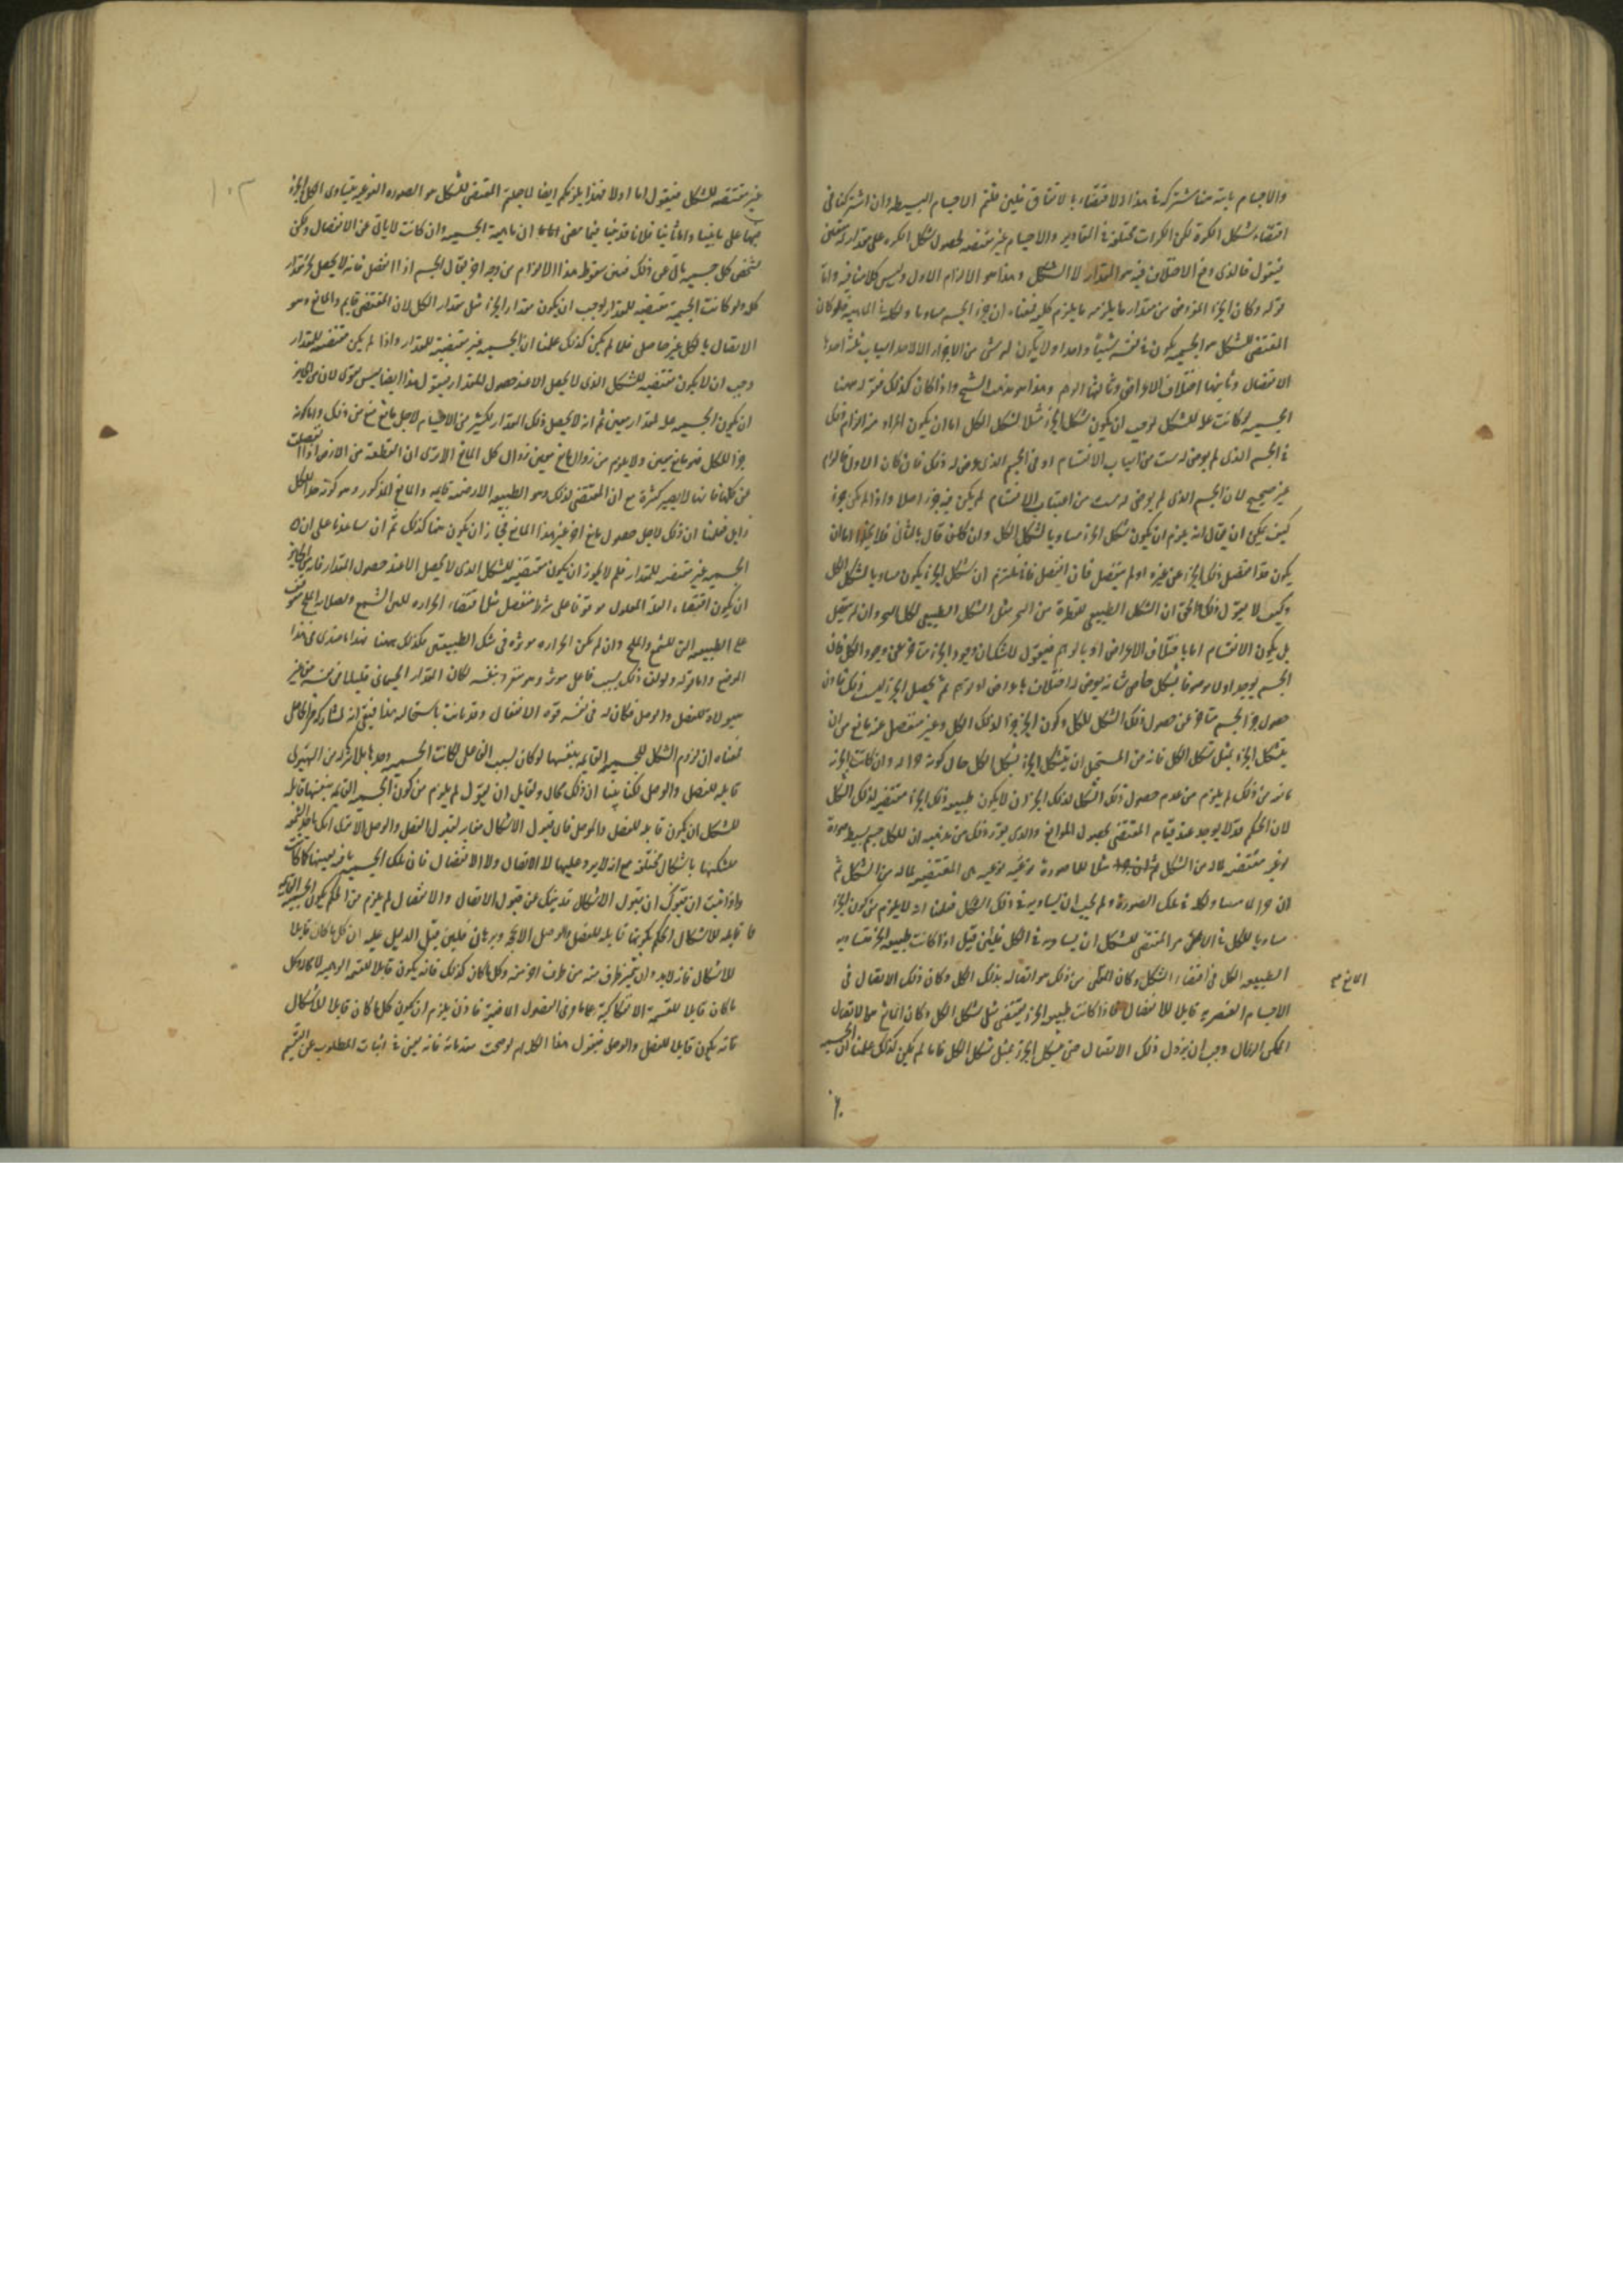 والاجسام باسرها مشتركة في هذا الاقتضاء بالاتفاق فلئن قلتم الاجسام البسيطة وان اشتركت في
اقتضاء شكل الكرة لكن الكرات مختلفة في المقادير والاجسام غير مقتضيه لحصول شكل الكره على مقدار
فيقول فالذي وقع الاختلاف فيه هو المقدار لا الشكل وهذا هو الالزام الاول وليس كلامنا فيه واما
قوله وكان الجزء المفروض من مقدار ما يلزمه ما يلزم كليه فمعناه ان جزء الجسم مساويا ولكله في الماهية فلو كان
المقتضي للشكل هو الجسميه يكون في نفسه شيئا واحدا ولا يكون له شيء من الاجزاء الا لاحد اسباب ثلثة احدها
الانفصال وثانيها اختلاف الاعراض وثالثها الوهم وهذا هو مذهب الشيخ واذا كان كذلك فقوله ههنا
الجسميه لو كانت علة للشكل لوجب ان يكون شكل الجزء مثلا لشكل الكل اما ان يكون المراد منه الزام ذلك
في الجسم الذي لم يعرض له شيء من اسباب الانقسام او في الجسم الذي عرض له ذلك فان كان الاول فالالزام
غير صحيح لان الجسم الذي لم يعرض له شيء من اسباب الانقسام لم يكن فيه جزء اصلا واذا لم يكن جزء
كيف يمكن ان يقال انه يلزم ان يكون شكل الجزء مساويا لشكل الكل وان كان قال بالثاني فلا يخلو اما ان
يكون قد انفصل ذلك الجزء عن غيره او لم ينفصل فان انفصل فانا نلتزم ان شكل الجزء يكون مساويا لشكل الكل
وكيف لا نقول ذلك والحق ان الشكل الطبيعي لقطرة من البحر مثل الشكل الطبيعي لكل البحر وان لم ينفصل
بل يكون الانقسام اما باختلاف الاعراض او بالوهم فيقول للشكل ان وجود الجزء متاخر عن وجود الكل فان
الجسم يوجد اولا موصوفا بشكل خاص ثم انه يعرض له اختلاف باعراض او توهم ثم يحصل الجزء بسبب ذلك فاذن
حصول جزء الجسم متاخر عن حصول ذلك الشكل للكل وكون الجزء جزءا لذلك الكل وغير منفصل عنه مانع من ان
يتشكل الجزء بمثل شكل الكل فانه من المستحيل ان يتشكل الجزء بشكل الكل حال كونه جزءا له وان كانت الجزئية
مانعه من ذلك لم يلزم من عدم حصول ذلك الشكل لذلك الجزء ان لا يكون طبيعة ذلك الجزء مقتضيه لذلك الشكل
لان الحكم قد لا يوجد عند قيام المقتضي لحصول الموانع والذي يقرر ذلك من مذهبه ان للكل جسم بسيط صورة
نوعيه مقتضيه لما له من الشكل مثلا للماء صورة نوعيه هي المقتضيه لما له من الشكل ثم
ان جزءه مساو لكله في تلك الصورة ولم يجب ان يساويه في ذلك الشكل فعلمنا انه لا يلزم من كون الجزء
مساويا للكل في الامر المقتضي للشكل ان يساويه في الشكل فلئن قيل اذا كانت طبيعة الجزء مساويه
لطبيعة الكل في اقتضاء الشكل وكان المانع من ذلك هو اتصاله بذلك الكل وكان ذلك الاتصال في
الاجسام العنصريه قابلا للانفصال فاذا كانت طبيعة الجزء يقتضي مثل شكل الكل وكان المانع هو الاتصال
الممكن الزوال وجب ان يزول ذلك الاتصال حتى يتشكل الجزء بمثل شكل الكل فلما لم يكن كذلك علمنا ان الجسميه
المانع
١٠٢
غير مقتضيه للشكل فيقول اما اولا فهذا يلزمكم ايضا لما جعلتم المقتضي للشكل هو الصورة النوعيه يتساوى الكل والجزء
فيها على ما بينا واما ثانيا فلانا قد بينا فيما مضى ان ماهية الجسميه وان كانت لا يابى عن الانفصال ولكن
تشخص كل جسميه يابى عن ذلك فبين سقوط هذا الالزام من وجه اخر يقال الجسم اذا انفصل فانه لا يحصل لجزئه مقدار
كله ولو كانت الجسميه مقتضيه للمقدار لوجب ان يكون مقدار الجزء مثل مقدار الكل لان المقتضي قايم والمانع وهو
الاتصال بالكل غير حاصل فلما لم يكن كذلك علمنا ان الجسميه غير مقتضيه للمقدار واذا لم يكن مقتضيه للمقدار
وجب ان لا يكون مقتضيه للشكل الذي لا يحصل الا عند حصول المقدار فيقول هذا ايضا ليس بقوي لان من الجايز
ان يكون الجسميه علة لمقدار معين ثم انه لا يحصل ذلك المقدار لكثير من الاجسام لاجل مانع منع من ذلك واما كونه
جزءا للكل فهو مانع معين ولا يلزم من زوال مانع معين زوال كل المانع الا ترى ان القطعة من الارض اذا انفصلت
عن كلها فانها لا يصير كثيرة مع ان المقتضي لذلك وهو الطبيعة الارضيه قايمه والمانع المذكور وهو كونه جزءا للكل
زايل فعلمنا ان ذلك لاجل حصول مانع اخر غير هذا المانع فجاز ان يكون هنا كذلك ثم ان ساعدنا على ان
الجسميه غير مقتضيه للمقدار فلم لا يجوز ان يكون مقتضيه للشكل الذي لا يحصل الا عند حصول المقدار فانه من الجايز
ان يكون اقتضاء العلة المعلول موقوفا على شرط منفصل مثل اقتضاء الحرارة للين الشمع ولصلابة الملح موقوف
على الطبيعة التي للشمع والملح وان لم يكن الحرارة موثرة في شكل الطبيعتين فكذلك ههنا فهذا ما عندي في هذا
الموضع واما قوله ولو لزم ذلك بسبب فاعل موثر وهو منفرد بنفسه لكان المقدار الجسماني قابلا في نفسه من غير
هيولاه للفصل والوصل فكان له في نفسه قوة الانفعال وقد بانت استحاله هذا فبقي انه لمشاركة الحامل
فمعناه ان لزوم الشكل للجسميه القايمه بنفسها لو كان بسبب الفاعل لكانت الجسميه وحدها بلا شركه من الهيولى
قابله للفصل والوصل لكنا بينا ان ذلك محال ولقايل ان يقول لم يلزم من كون الجسميه القايمه بنفسها قابله
للشكل ان يكون قابله للفصل والوصل فان قبول الاشكال مغاير لقبول الفصل والوصل الا ترى انك تاخذ الشمعه
فتشكلها باشكال مختلفه مع انه لا يرد عليها لا الاتصال ولا الانفصال فان تلك الجسميه باقيه بعينها كما كانت
واذا ثبت ان قبول الاشكال قد ينفك عن قبول الاتصال والانفصال لم يلزم من الحكم بكون الجسميه القايمه
قابله للاشكال الحكم بكونها قابله للفصل والوصل الا لحجه وبرهان فلئن قيل الدليل عليه ان كل ما كان قابلا
للاشكال فانه لا بد وان يتميز طرف منه من طرف اخر منه وكل ما كان كذلك فانه يكون قابلا للقسمه الوهميه وكل
ما كان قابلا للقسمة الانفكاكية على ما مر في الفصول الماضية فاذن يلزم ان يكون كل ما كان قابلا للاشكال
فانه يكون قابلا للفصل والوصل فيقول هذا الكلام لو صحت مقدماته فانه يغني في اثبات المطلوب عن التقسيم